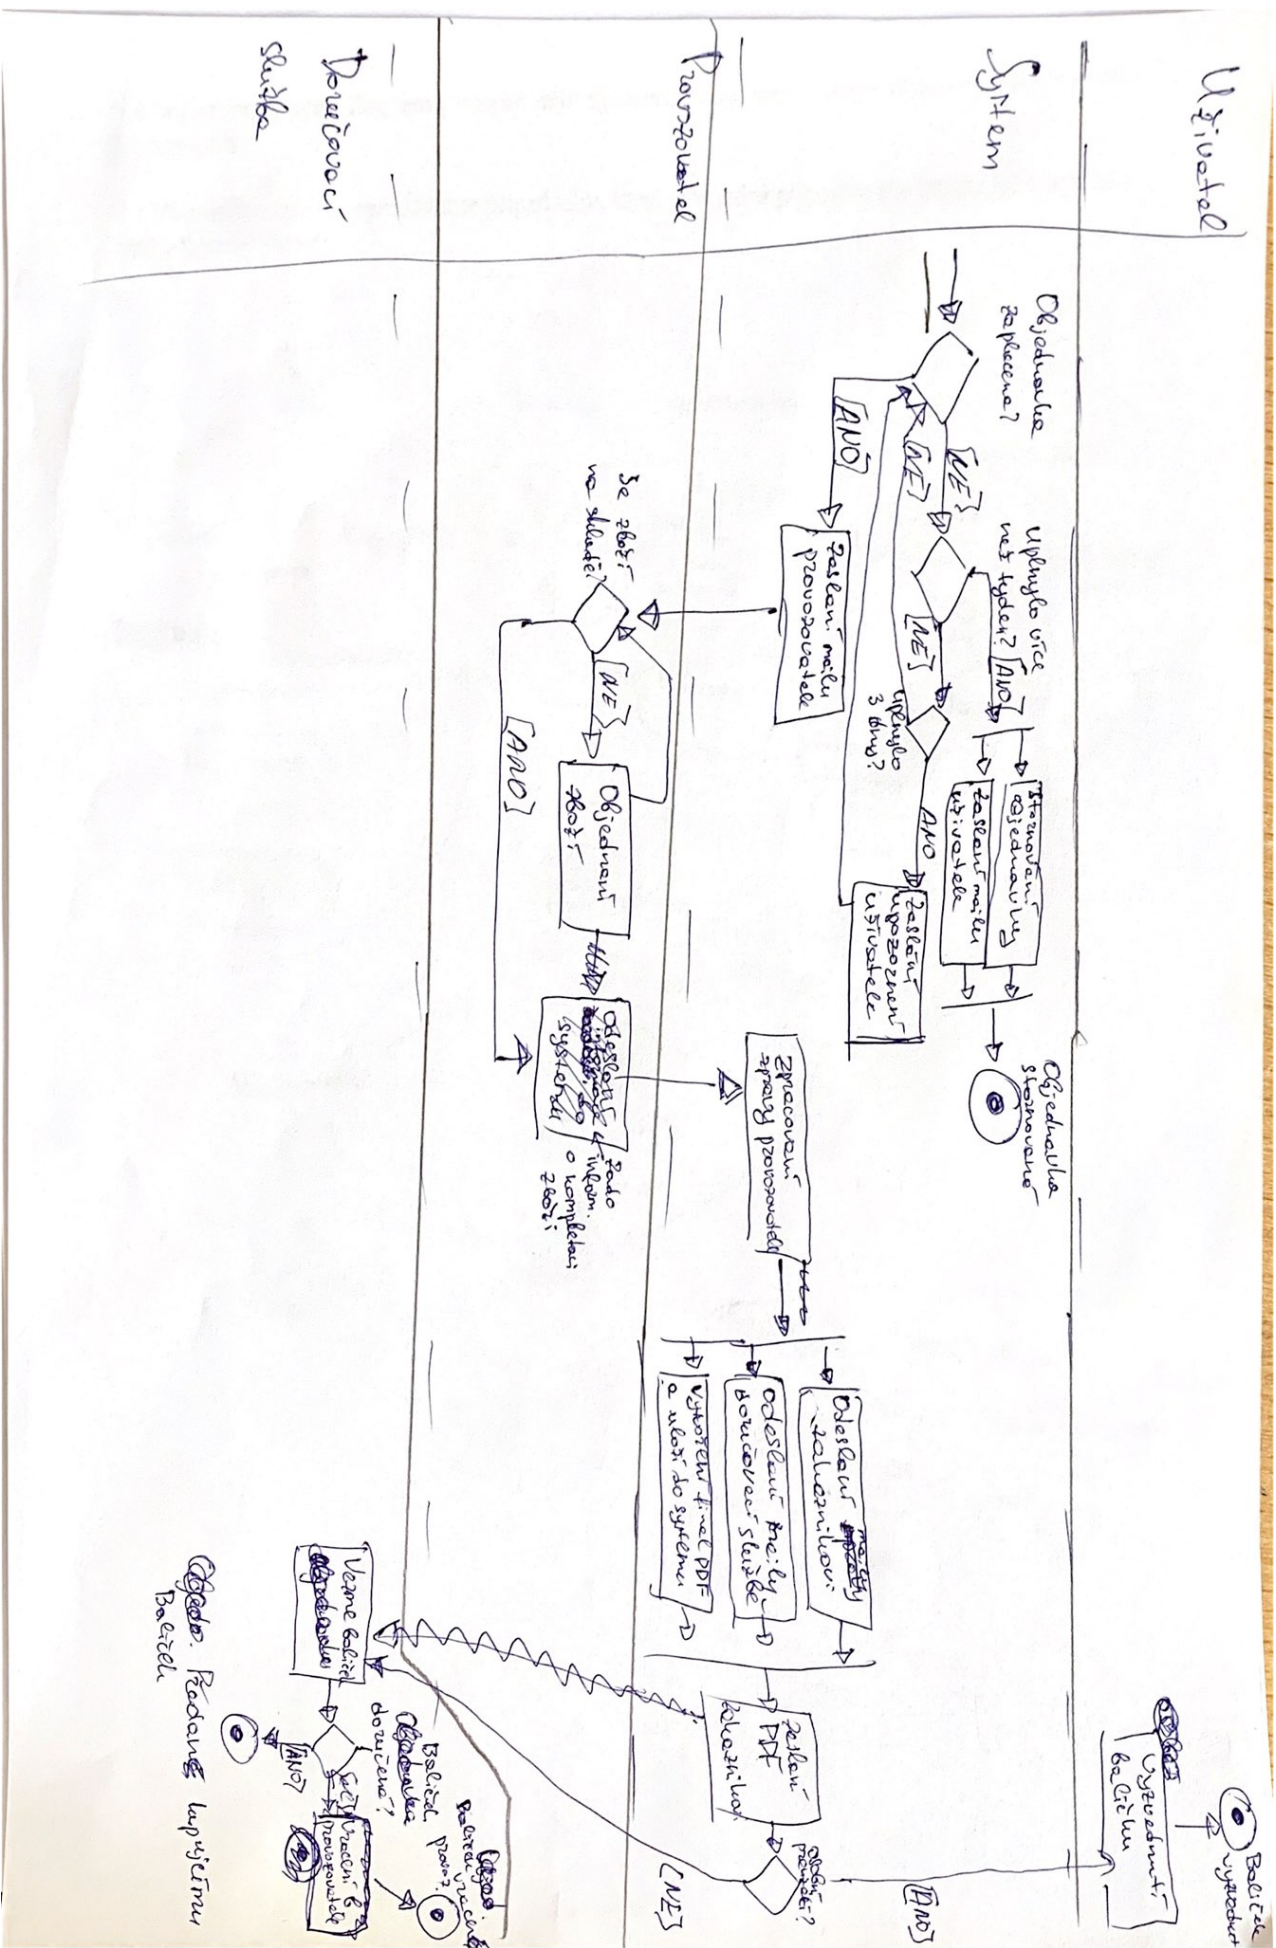 Uživatel
System
Provozovatel
Doručovací
služba
Objednávka
zaplacena?
[NE]
[NE]
[ANO]
Uplynulo více
než týden?
[ANO]
[NE]
Uplynulo
3 dny?
ANO
Stornování
objednávky
Zaslání mailu
uživatele
Zaslání
upozornění
uživatele
Objednávka
stornovaná
Zaslání mailu
provozovatele
Je zboží
na skladě?
[NE]
[ANO]
Objednání
zboží
Odeslání
systému
inform.
o kompletaci
zboží
Zpracování
zprávy provozovatele
Odeslání maily
zákazníkovi
Odeslání maily
doručovací službě
Vytvoření final PDF
a uloží do systemu
Zaslání
PDF
zákazníkovi
[ANO]
[NE]
Vyzvednutí
balíčku
Balíček
vyzvednut
Vezme balíček
Balíček
doručena?
[ANO]
Vrácení
provozovatele
Balíček
Předané kupujícímu
Balíček